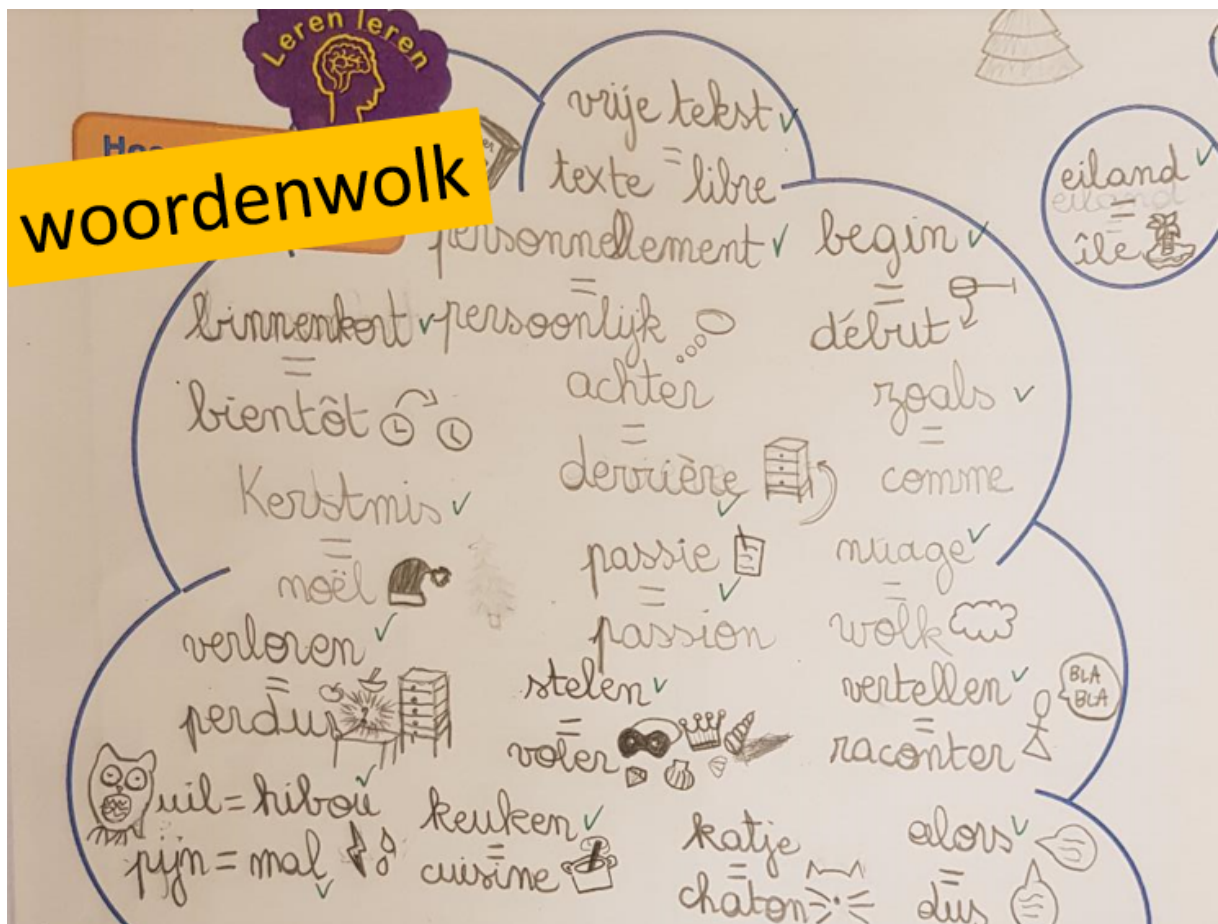 Leren leren
woordenwolk
vrije tekst
=
texte libre
eiland
eiland
=
île
personnellement
=
persoonlijk
begin
=
début
binnenkort
=
bientôt
achter
=
derrière
zoals
=
comme
Kerstmis
=
noël
passie
=
passion
nuage
=
wolk
verloren
=
perdus
?
stelen
=
voler
vertellen
=
raconter
BLA
BLA
uil = hibou
pijn = mal
keuken
=
cuisine
katje
=
chaton
alors
=
dus